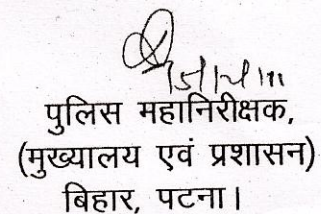 पुलिस महानिरीक्षक,
(मुख्यालय एवं प्रशासन)
बिहार, पटना।